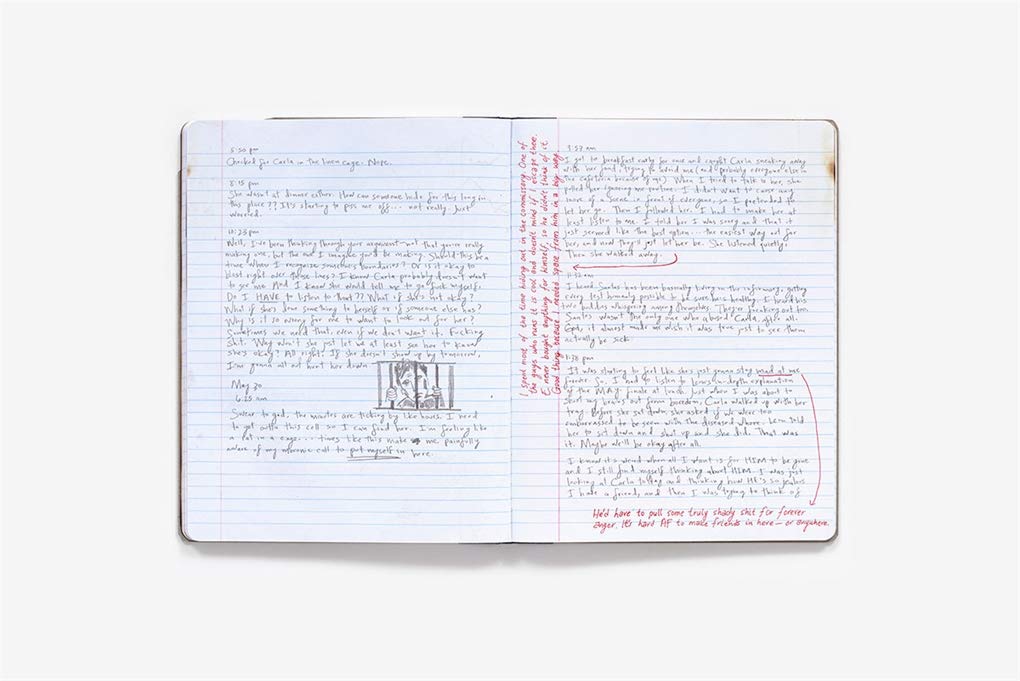 5:50 pm
Checked for Carla in the linen cage. Nope.
8:15 pm
She wasn't at dinner either. How can someone hide for this long in
this place?? It's starting to piss me off... not really. Just
worried.
10:23 pm
Well, I've been thinking through your argument—not that you're really
making one, but the one I imagine you'd be making. Should this be a
time when I recognize someone's boundaries? Or is it okay to
blast right over those lines? I know Carla probably doesn't want
to see me. And I know she would tell me to go fuck myself.
Do I HAVE to listen to that?? What if she's not okay?
What if she's done something to herself or if someone else has?
Why is it so wrong for me to want to look out for her?
Sometimes we need that, even if we don't want it. Fucking
shit. Why won't she just let me at least see her to know
she's okay? All right. If she doesn't show up by tomorrow,
I'm gonna all out hunt her down
May 30
6:25 am
Swear to god, the minutes are ticking by like hours. I need
to get outta this cell so I can find her. I'm feeling like
a rat in a cage... times like this make me painfully
aware of my moronic call to put myself in here.
I spend most of the time hiding out in the commissary. One of
the guys who runs it is cool and doesn't mind if I escape there.
E. never bought anything for himself, so he didn't think of it.
Good thing, because I needed space from him in a big way.
7:57 am
I got to breakfast early for once and caught Carla sneaking away
with her food, trying to avoid me (and probably everyone else in
the cafeteria because of me). When I tried to talk to her, she
pulled her ignoring me routine. I didn't want to cause any
more of a scene in front of everyone, so I pretended to
let her go. Then I followed her. I had to make her at
least listen to me. I told her I was sorry and that it
just seemed like the best option... the easiest way out for
her, and now they'll just let her be. She listened quietly.
Then she walked away.
11:32 am
I heard Santos has been basically living in the infirmary, getting
every test humanly possible to be sure he's healthy. I heard his
two buddies whispering among themselves. They're freaking out too.
Santos wasn't the only one who abused Carla, after all.
God, it almost made me wish it was true just to see them
actually be sick.
1:38 pm
It was starting to feel like she's just gonna stay mad at me
forever. So, I had to listen to Lem's in-depth explanation
of the MAY finale at lunch. Just when I was about to
shit my beans out from boredom, Carla walked up with her
tray. Before she sat down, she asked if we were too
embarrassed to be seen with the diseased whore. Lem told
her to sit down and shut up and she did. That was
it. Maybe we'll be okay after all.
I know it's weird when all I want is for HIM to be gone
and I still find myself thinking about HIM. I was just
looking at Carla talking and thinking how HE's so jealous
I have a friend, and then I was trying to think of
He'd have to pull some truly shady shit for forever
anger. It's hard AF to make friends in here—or anywhere.